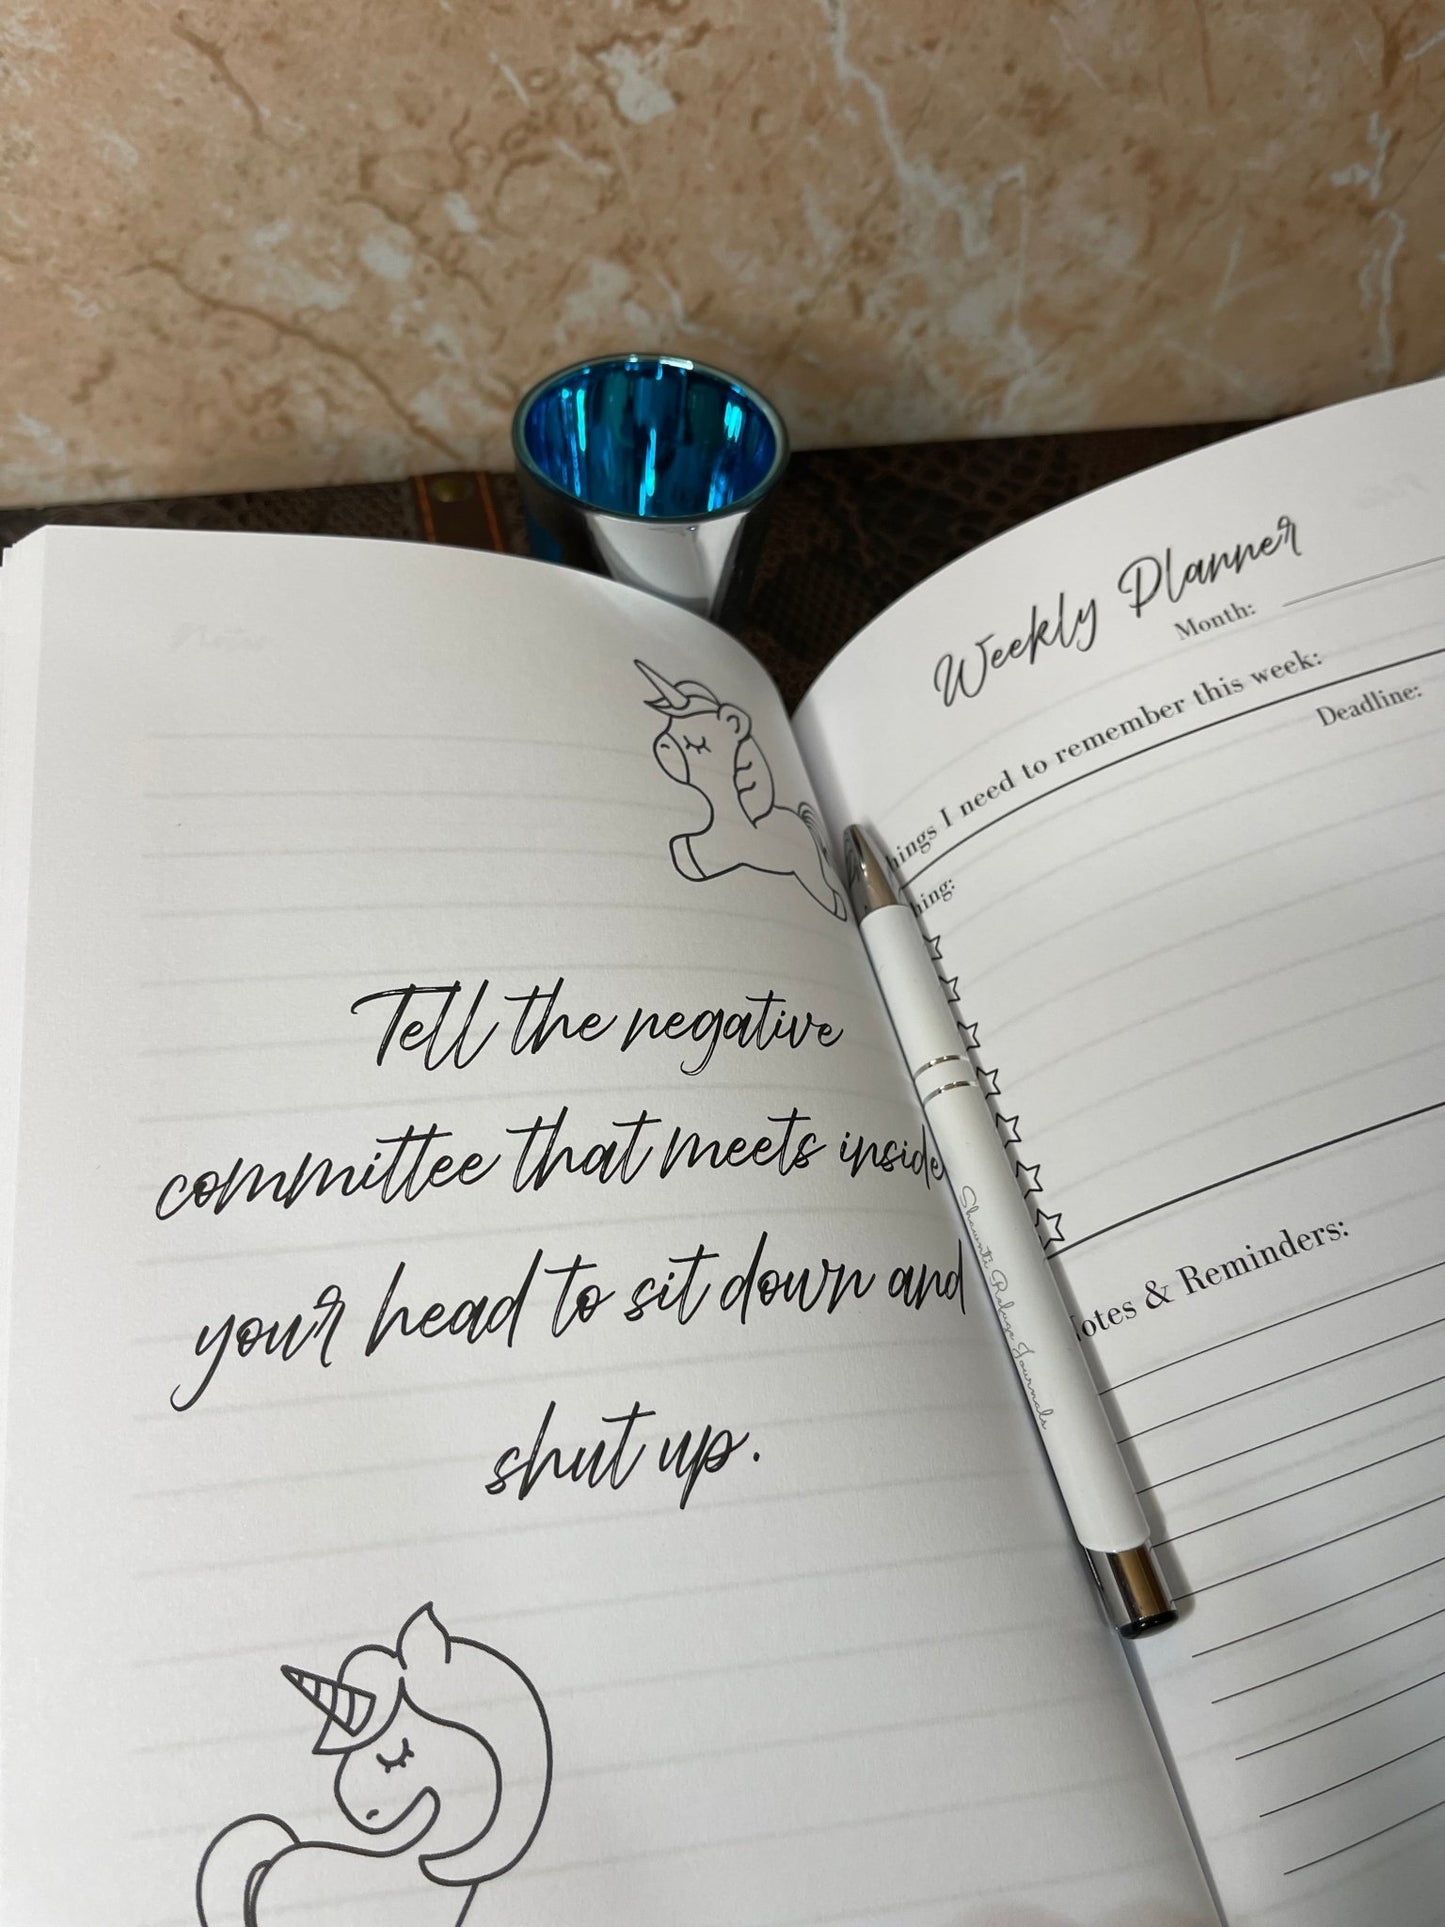 Notes
Tell the negative
committee that meets inside
your head to sit down and
shut up.
Weekly Planner
Month:
hings I need to remember this week:
hing:
Deadline:
otes & Reminders:
Shauntá Rebuge Journals